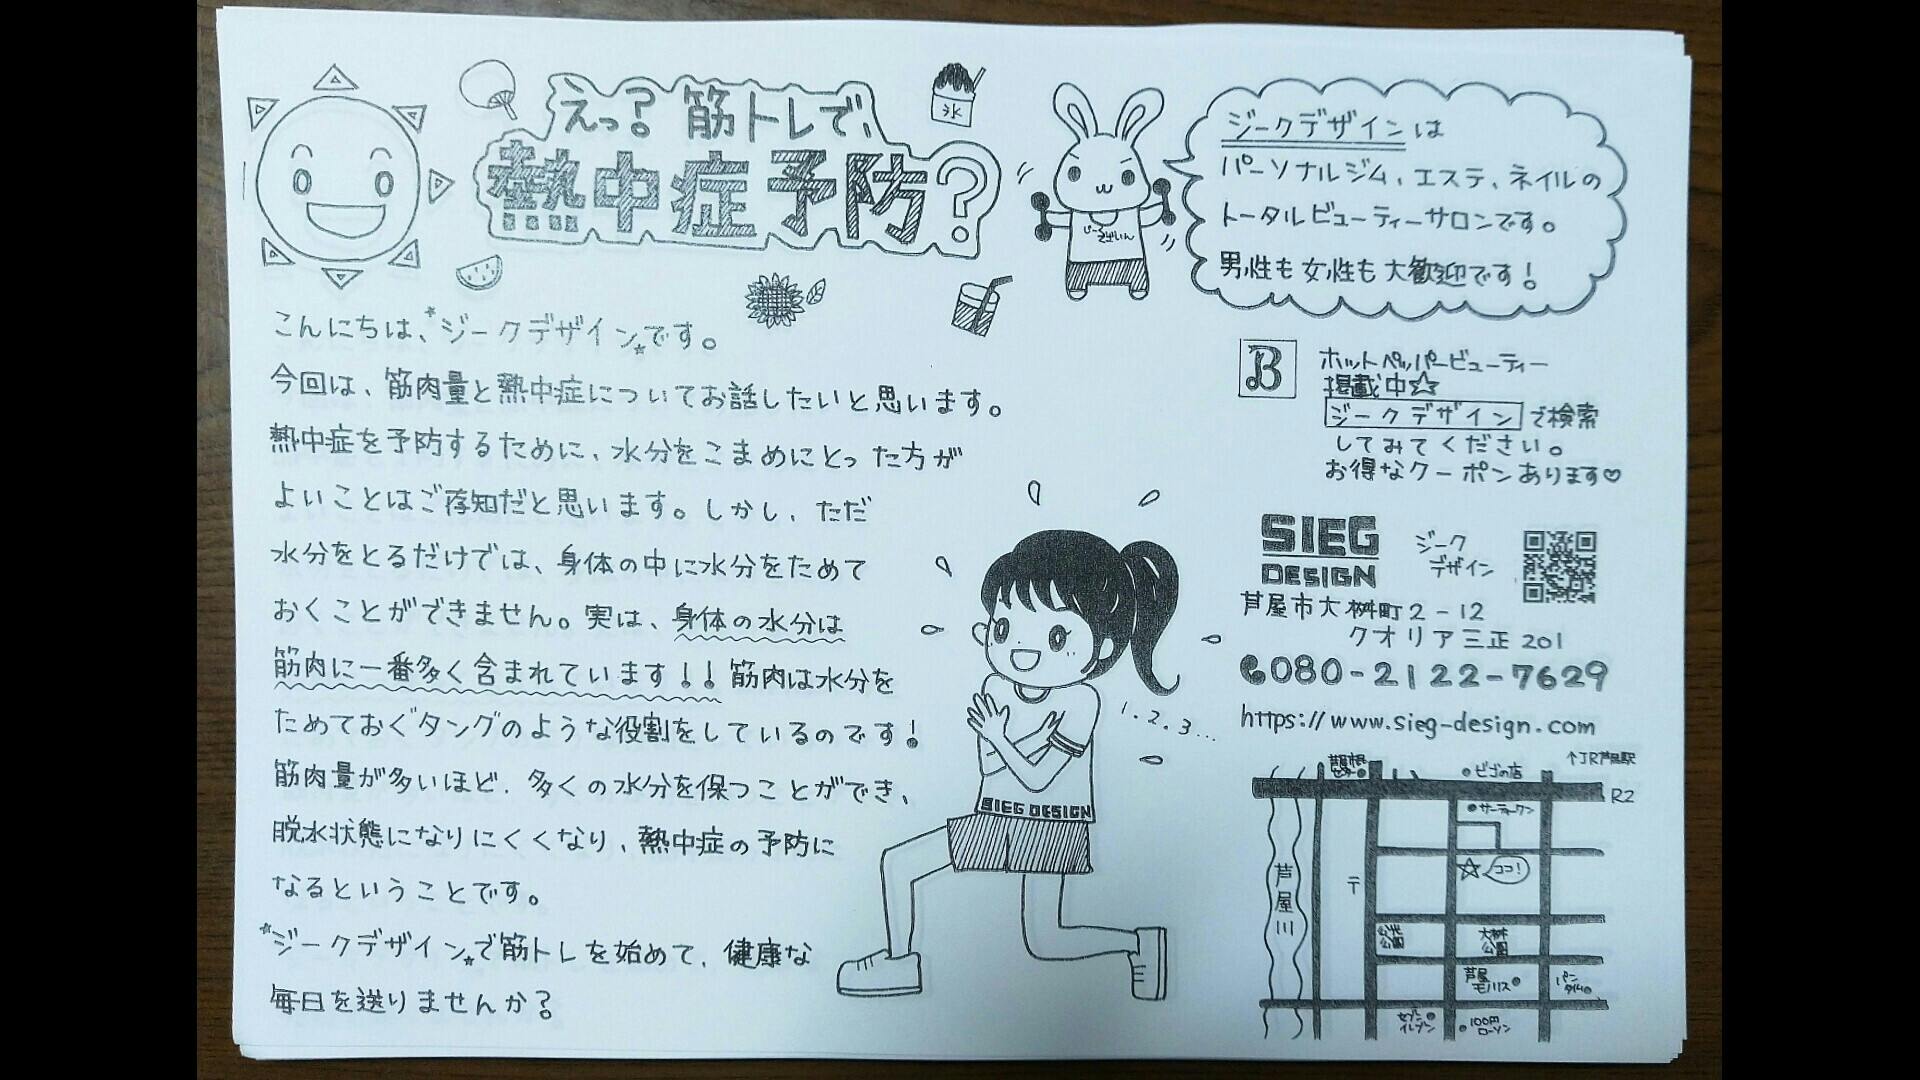 えっ?筋トレで、
熱中症予防?
氷
じーくでざいん
ジークデザインは
パーソナルジム、エステ、ネイルの
トータルビューティーサロンです。
男性も女性も大歓迎です!
こんにちは、ジークデザインです。
今回は、筋肉量と熱中症についてお話したいと思います。
熱中症を予防するために、水分をこまめにとった方が
よいことはご存知だと思います。しかし、ただ
水分をとるだけでは、身体の中に水分をためて
おくことができません。実は、身体の水分は
筋肉に一番多く含まれています!!筋肉は水分を
ためておくタンクのような役割をしているのです!
筋肉量が多いほど、多くの水分を保つことができ、
脱水状態になりにくくなり、熱中症の予防に
なるということです。
ジークデザインで筋トレを始めて、健康な
毎日を送りませんか?
1.2.3...
SIEG DESIGN
B
ホットペッパービューティー
掲載中☆
ジークデザインで検索
してみてください。
お得なクーポンあります♡
SIEG
DESIGN
ジーク
デザイン
芦屋市大桝町2-12
クオリア三正201
080-2122-7629
https://www.sieg-design.com
↑JR芦屋駅
ビゴの店
R2
サーティーワン
ココ!
芦屋川
〒
公光
公園
大桝
公園
芦屋
モノリス
パン
タイム
セブン
イレブン
100円
ローソン